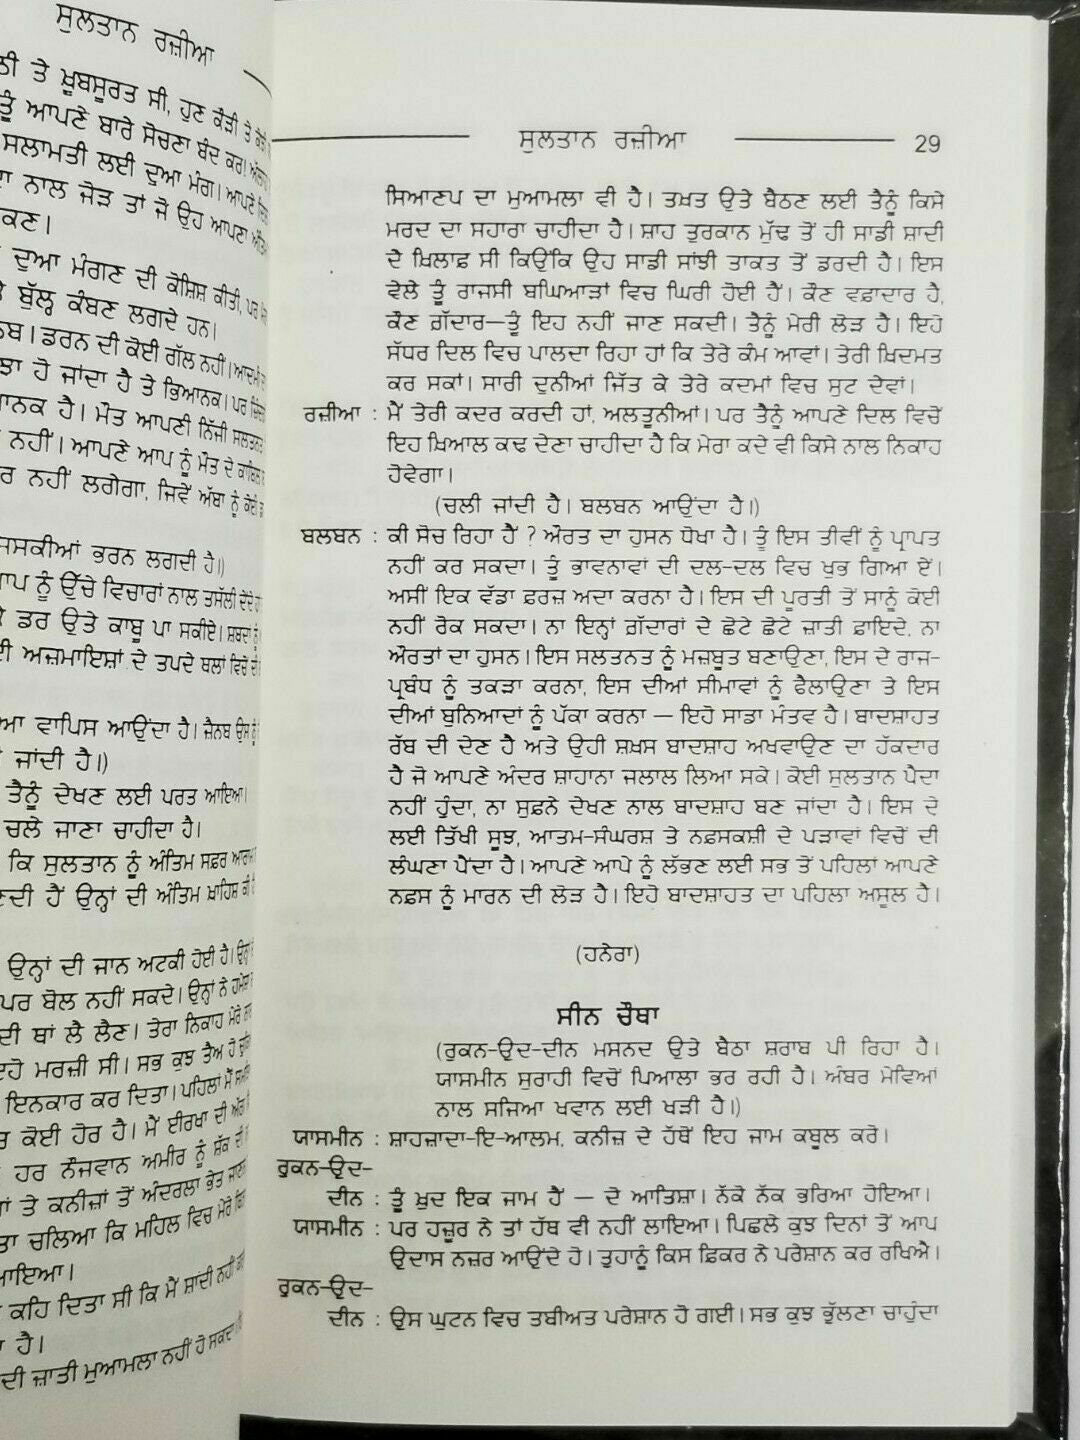 ਸੁਲਤਾਨ ਰਜ਼ੀਆ
ਤੇ ਖ਼ੂਬਸੂਰਤ ਸੀ, ਹੁਣ ਕੌੜੀ ਤੇ
ਤੂੰ ਆਪਣੇ ਬਾਰੇ ਸੋਚਣਾ ਬੰਦ ਕਰ।
ਸਲਾਮਤੀ ਲਈ ਦੁਆ ਮੰਗ। ਆਪਣੇ
ਨਾਲ ਜੋੜ ਤਾਂ ਜੋ ਉਹ ਆਪਣਾ
ਦੁਆ ਮੰਗਣ ਦੀ ਕੋਸ਼ਿਸ਼ ਕੀਤੀ, ਪਰ
ਬੁੱਲ੍ਹ ਕੰਬਣ ਲਗਦੇ ਹਨ।
ਡਰਨ ਦੀ ਕੋਈ ਗੱਲ ਨਹੀਂ।
ਹੋ ਜਾਂਦਾ ਹੈ ਤੇ ਭਿਆਨਕ। ਪਰ
ਹੈ। ਮੌਤ ਆਪਣੀ ਨਿੱਜੀ ਸਲਤਨਤ
ਨਹੀਂ। ਆਪਣੇ ਆਪ ਨੂੰ ਮੌਤ ਦੇ
ਨਹੀਂ ਲਗੇਗਾ, ਜਿਵੇਂ ਅੱਬਾ ਨੂੰ ਕੋਈ
ਭਰਨ ਲਗਦੀ ਹੈ।)
ਨੂੰ ਉੱਚੇ ਵਿਚਾਰਾਂ ਨਾਲ ਤਸੱਲੀ ਦੇਂਦੇ
ਡਰ ਉਤੇ ਕਾਬੂ ਪਾ ਸਕੀਏ। ਸ਼ਬਦਾਂ ਨੂੰ
ਅਜ਼ਮਾਇਸ਼ਾਂ ਦੇ ਤਪਦੇ ਥਲਾਂ ਵਿਚੋਂ ਦੀ
ਵਾਪਿਸ ਆਉਂਦਾ ਹੈ। ਜ਼ੈਨਬ ਉਸ ਨੂੰ
ਜਾਂਦੀ ਹੈ।)
ਤੈਨੂੰ ਦੇਖਣ ਲਈ ਪਰਤ ਆਇਆ।
ਚਲੇ ਜਾਣਾ ਚਾਹੀਦਾ ਹੈ।
ਕਿ ਸੁਲਤਾਨ ਨੂੰ ਅੰਤਿਮ ਸਫ਼ਰ
ਹੈਂ ਉਨ੍ਹਾਂ ਦੀ ਅੰਤਿਮ ਖ਼ਾਹਿਸ਼ ਕੀ
ਉਨ੍ਹਾਂ ਦੀ ਜਾਨ ਅਟਕੀ ਹੋਈ ਹੈ।
ਪਰ ਬੋਲ ਨਹੀਂ ਸਕਦੇ। ਉਨ੍ਹਾਂ ਨੇ ਹਮੇਸ਼ਾ
ਦੀ ਥਾਂ ਲੈ ਲੈਣ। ਤੇਰਾ ਨਿਕਾਹ ਮੇਰੇ
ਮਰਜ਼ੀ ਸੀ। ਸਭ ਕੁਝ ਤੈਅ ਹੋ
ਇਨਕਾਰ ਕਰ ਦਿਤਾ। ਪਹਿਲਾਂ ਮੈਂ
ਕੋਈ ਹੋਰ ਹੈ। ਮੈਂ ਈਰਖਾ ਦੀ ਅੱਗ
ਹਰ ਨੌਜਵਾਨ ਅਮੀਰ ਨੂੰ ਸ਼ੱਕ ਦੀ
ਤੇ ਕਨੀਜ਼ਾਂ ਤੋਂ ਅੰਦਰਲਾ ਭੇਤ
ਚਲਿਆ ਕਿ ਮਹਿਲ ਵਿਚ ਮੇਰੇ
ਕਹਿ ਦਿਤਾ ਸੀ ਕਿ ਮੈਂ ਸ਼ਾਦੀ ਨਹੀਂ
ਹੈ।
ਦੀ ਜ਼ਾਤੀ ਮੁਆਮਲਾ ਨਹੀਂ ਹੋ ਸਕਦਾ
ਸੁਲਤਾਨ ਰਜ਼ੀਆ 29
ਸਿਆਣਪ ਦਾ ਮੁਆਮਲਾ ਵੀ ਹੈ। ਤਖ਼ਤ ਉਤੇ ਬੈਠਣ ਲਈ ਤੈਨੂੰ ਕਿਸੇ
ਮਰਦ ਦਾ ਸਹਾਰਾ ਚਾਹੀਦਾ ਹੈ। ਸ਼ਾਹ ਤੁਰਕਾਨ ਮੁੱਢ ਤੋਂ ਹੀ ਸਾਡੀ ਸ਼ਾਦੀ
ਦੇ ਖ਼ਿਲਾਫ਼ ਸੀ ਕਿਉਂਕਿ ਉਹ ਸਾਡੀ ਸਾਂਝੀ ਤਾਕਤ ਤੋਂ ਡਰਦੀ ਹੈ। ਇਸ
ਵੇਲੇ ਤੂੰ ਰਾਜਸੀ ਬਘਿਆੜਾਂ ਵਿਚ ਘਿਰੀ ਹੋਈ ਹੈਂ। ਕੌਣ ਵਫ਼ਾਦਾਰ ਹੈ,
ਕੌਣ ਗ਼ੱਦਾਰ—ਤੂੰ ਇਹ ਨਹੀਂ ਜਾਣ ਸਕਦੀ। ਤੈਨੂੰ ਮੇਰੀ ਲੋੜ ਹੈ। ਇਹੋ
ਸੱਧਰ ਦਿਲ ਵਿਚ ਪਾਲਦਾ ਰਿਹਾ ਹਾਂ ਕਿ ਤੇਰੇ ਕੰਮ ਆਵਾਂ। ਤੇਰੀ ਖ਼ਿਦਮਤ
ਕਰ ਸਕਾਂ। ਸਾਰੀ ਦੁਨੀਆਂ ਜਿੱਤ ਕੇ ਤੇਰੇ ਕਦਮਾਂ ਵਿਚ ਸੁਟ ਦੇਵਾਂ।
ਰਜ਼ੀਆ : ਮੈਂ ਤੇਰੀ ਕਦਰ ਕਰਦੀ ਹਾਂ, ਅਲਤੂਨੀਆਂ। ਪਰ ਤੈਨੂੰ ਆਪਣੇ ਦਿਲ ਵਿਚੋਂ
ਇਹ ਖ਼ਿਆਲ ਕਢ ਦੇਣਾ ਚਾਹੀਦਾ ਹੈ ਕਿ ਮੇਰਾ ਕਦੇ ਵੀ ਕਿਸੇ ਨਾਲ ਨਿਕਾਹ
ਹੋਵੇਗਾ।
(ਚਲੀ ਜਾਂਦੀ ਹੈ। ਬਲਬਨ ਆਉਂਦਾ ਹੈ।)
ਬਲਬਨ : ਕੀ ਸੋਚ ਰਿਹਾ ਹੈਂ ? ਔਰਤ ਦਾ ਹੁਸਨ ਧੋਖਾ ਹੈ। ਤੂੰ ਇਸ ਤੀਵੀਂ ਨੂੰ ਪ੍ਰਾਪਤ
ਨਹੀਂ ਕਰ ਸਕਦਾ। ਤੂੰ ਭਾਵਨਾਵਾਂ ਦੀ ਦਲ-ਦਲ ਵਿਚ ਖੁਭ ਗਿਆ ਏਂ।
ਅਸੀਂ ਇਕ ਵੱਡਾ ਫ਼ਰਜ਼ ਅਦਾ ਕਰਨਾ ਹੈ। ਇਸ ਦੀ ਪੂਰਤੀ ਤੋਂ ਸਾਨੂੰ ਕੋਈ
ਨਹੀਂ ਰੋਕ ਸਕਦਾ। ਨਾ ਇਨ੍ਹਾਂ ਗ਼ੱਦਾਰਾਂ ਦੇ ਛੋਟੇ ਛੋਟੇ ਜ਼ਾਤੀ ਫ਼ਾਇਦੇ, ਨਾ
ਔਰਤਾਂ ਦਾ ਹੁਸਨ। ਇਸ ਸਲਤਨਤ ਨੂੰ ਮਜ਼ਬੂਤ ਬਣਾਉਣਾ, ਇਸ ਦੇ ਰਾਜ-
ਪ੍ਰਬੰਧ ਨੂੰ ਤਕੜਾ ਕਰਨਾ, ਇਸ ਦੀਆਂ ਸੀਮਾਵਾਂ ਨੂੰ ਫੈਲਾਉਣਾ ਤੇ ਇਸ
ਦੀਆਂ ਬੁਨਿਆਦਾਂ ਨੂੰ ਪੱਕਾ ਕਰਨਾ — ਇਹੋ ਸਾਡਾ ਮੰਤਵ ਹੈ। ਬਾਦਸ਼ਾਹਤ
ਰੱਬ ਦੀ ਦੇਣ ਹੈ ਅਤੇ ਉਹੀ ਸ਼ਖ਼ਸ ਬਾਦਸ਼ਾਹ ਅਖਵਾਉਣ ਦਾ ਹੱਕਦਾਰ
ਹੈ ਜੋ ਆਪਣੇ ਅੰਦਰ ਸ਼ਾਹਾਨਾ ਜਲਾਲ ਲਿਆ ਸਕੇ। ਕੋਈ ਸੁਲਤਾਨ ਪੈਦਾ
ਨਹੀਂ ਹੁੰਦਾ, ਨਾ ਸੁਫ਼ਨੇ ਦੇਖਣ ਨਾਲ ਬਾਦਸ਼ਾਹ ਬਣ ਜਾਂਦਾ ਹੈ। ਇਸ ਦੇ
ਲਈ ਤਿੱਖੀ ਸੂਝ, ਆਤਮ-ਸੰਘਰਸ਼ ਤੇ ਨਫ਼ਸਕਸ਼ੀ ਦੇ ਪੜਾਵਾਂ ਵਿਚੋਂ ਦੀ
ਲੰਘਣਾ ਪੈਂਦਾ ਹੈ। ਆਪਣੇ ਆਪੇ ਨੂੰ ਲੱਭਣ ਲਈ ਸਭ ਤੋਂ ਪਹਿਲਾਂ ਆਪਣੇ
ਨਫ਼ਸ ਨੂੰ ਮਾਰਨ ਦੀ ਲੋੜ ਹੈ। ਇਹੋ ਬਾਦਸ਼ਾਹਤ ਦਾ ਪਹਿਲਾ ਅਸੂਲ ਹੈ।
(ਹਨੇਰਾ)
ਸੀਨ ਚੌਥਾ
(ਰੁਕਨ-ਉਦ-ਦੀਨ ਮਸਨਦ ਉਤੇ ਬੈਠਾ ਸ਼ਰਾਬ ਪੀ ਰਿਹਾ ਹੈ।
ਯਾਸਮੀਨ ਸੁਰਾਹੀ ਵਿਚੋਂ ਪਿਆਲਾ ਭਰ ਰਹੀ ਹੈ। ਅੰਬਰ ਮੇਵਿਆਂ
ਨਾਲ ਸਜਿਆ ਖਵਾਨ ਲਈ ਖੜੀ ਹੈ।)
ਯਾਸਮੀਨ : ਸ਼ਾਹਜ਼ਾਦਾ-ਇ-ਆਲਮ, ਕਨੀਜ਼ ਦੇ ਹੱਥੋਂ ਇਹ ਜਾਮ ਕਬੂਲ ਕਰੋ।
ਰੁਕਨ-ਉਦ-
ਦੀਨ : ਤੂੰ ਖ਼ੁਦ ਇਕ ਜਾਮ ਹੈਂ — ਦੋ ਆਤਿਸ਼ਾ। ਨੱਕੋ ਨੱਕ ਭਰਿਆ ਹੋਇਆ।
ਯਾਸਮੀਨ : ਪਰ ਹਜ਼ੂਰ ਨੇ ਤਾਂ ਹੱਥ ਵੀ ਨਹੀਂ ਲਾਇਆ। ਪਿਛਲੇ ਕੁਝ ਦਿਨਾਂ ਤੋਂ ਆਪ
ਉਦਾਸ ਨਜ਼ਰ ਆਉਂਦੇ ਹੋ। ਤੁਹਾਨੂੰ ਕਿਸ ਫ਼ਿਕਰ ਨੇ ਪਰੇਸ਼ਾਨ ਕਰ ਰਖਿਐ।
ਰੁਕਨ-ਉਦ-
ਦੀਨ : ਉਸ ਘੁਟਨ ਵਿਚ ਤਬੀਅਤ ਪਰੇਸ਼ਾਨ ਹੋ ਗਈ। ਸਭ ਕੁਝ ਭੁੱਲਣਾ ਚਾਹੁੰਦਾ